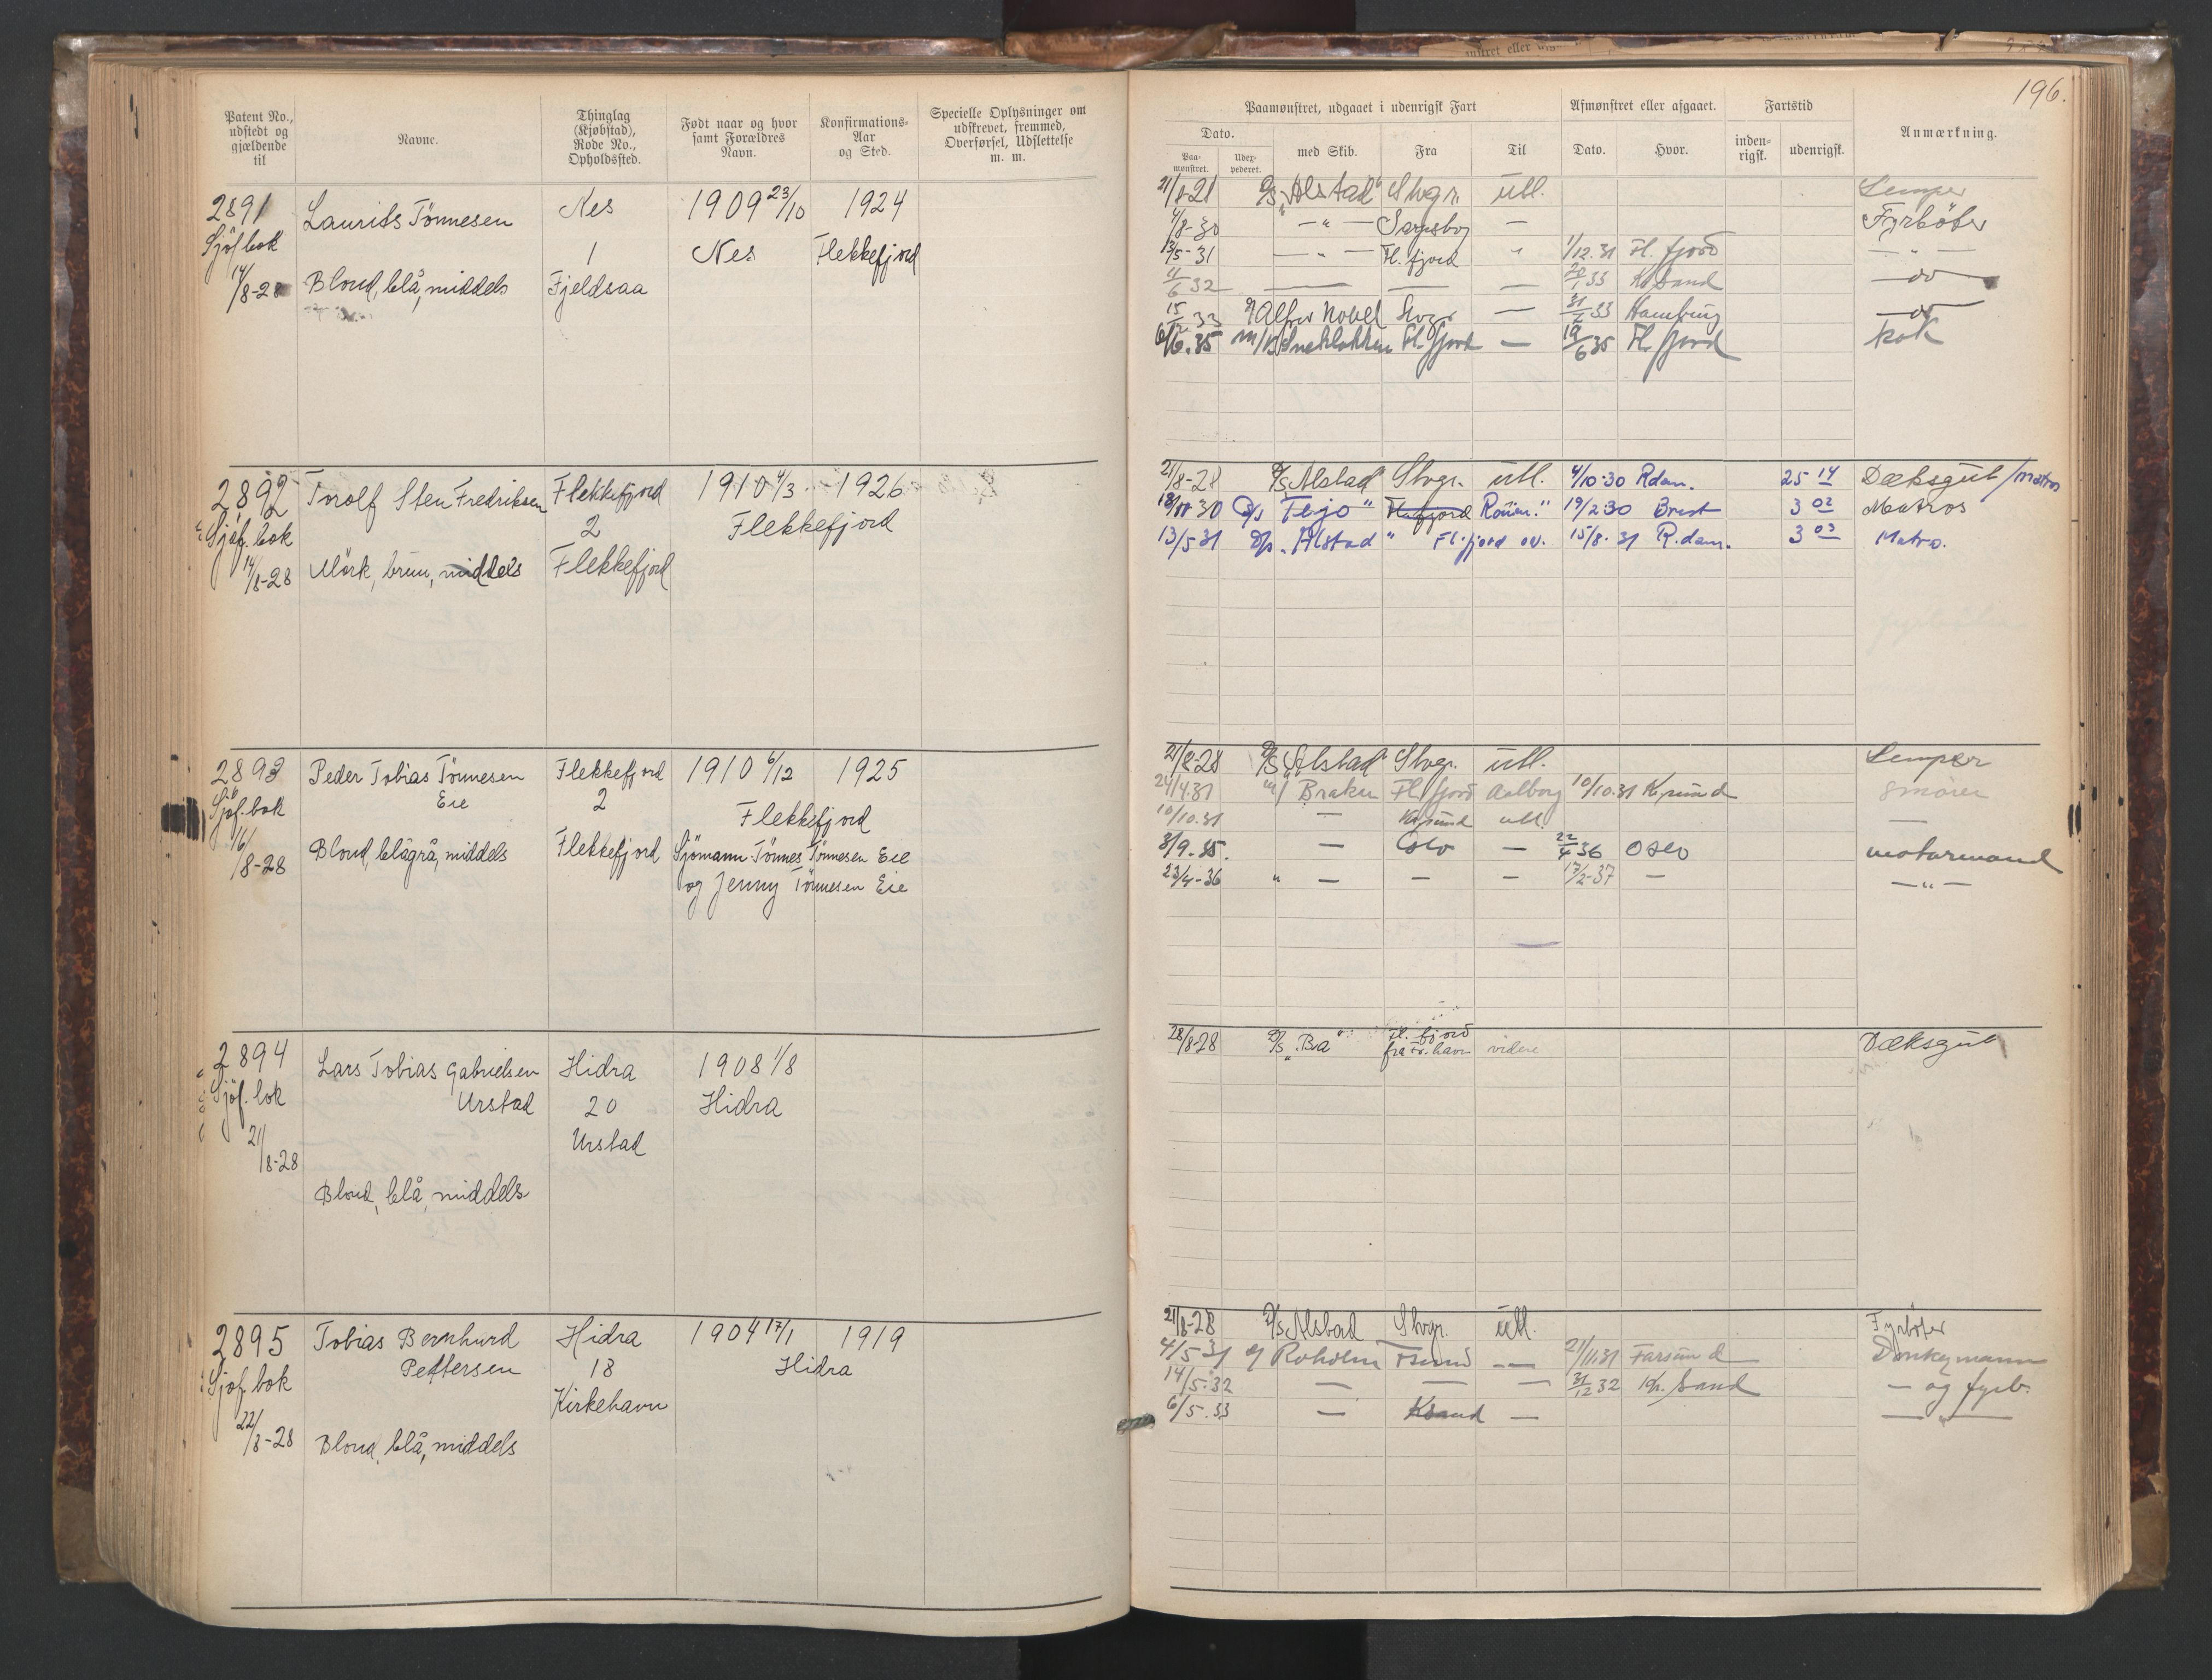 196.
Patent No., udstedt og gjældende til
Navne.
Thinglag (Kjøbstad), Rode No., Opholdssted.
Født naar og hvor samt Forældres Navn.
Konfirmations-Aar og Sted.
Specielle Oplysninger om udskrevet, fremmed, Overførsel, Udslettelse m. m.
Paamønstret, udgaaet i udenrigsk Fart
Afmønstret eller afgaaet.
Fartstid
Anmærkning.
Dato.
Paa-mønstret.
Udex-pederet.
med Skib.
Fra
Til
Dato.
Hvor.
inden-rigsk.
udenrigsk.
2891 Laurits Tönnesen Nes 1909 23/10 1924
Sjöf. bok 1 Nes Flekkefjord
14/8-28 Blond, blå, middels Fjeldsaa
21/8-28 D/S „Alstad" Stvgr. utl. Lemper
4/8-30 — " — Sarpsborg — Fyrböter
13/5-31 — " — Fl. fjord " 1/12.31 Fl. fjord — " —
4/6 32 — — — 20/1 33 Kr. Sand — do —
15/2.33 Alfred Nobel Stvgr — 31/2 33 Hamburg — do
6/6.35 m/k Sneklokken Fl. fjord — 19/6 35 Fl. fjord kok
2892 Torolf Sten Fredriksen Flekkefjord 1910 4/3 1926
Sjöf. bok 2 Flekkefjord
14/8-28 Mörk, brun, middels Flekkefjord
21/8-28 D/S Alstad Stvgr. utl. 4/10-30 Rdam. 25 14 Dæksgut/matros
18/11 30 D/S Fejo" Fl.fjord Rouen." 19/2 30 Brest 3 02 Matros
13/5 31 D/S „Alstad " Fl.fjord ov. 15/8. 31 R.dam. 3 03 Matro.
2893 Peder Tobias Tönnesen Flekkefjord 1910 6/12 1925
Sjöf. bok Eie 2 Flekkefjord
16/8-28 Blond, blågrå, middels Flekkefjord Sjömann Tönnes Tönnesen Eie
og Jenny Tönnesen Eie
21/8-28 D/S „Alstad Stvgr. utl. Lemper
24/4.31 m/ Braken Fl. fjord Aalborg 10/10.31 Kr.sund Smører
10/10.31 — Kr.sund utl. —
3/9-35. — Oslo — 22/4 36 Oslo motormand
23/4-36 " — — — 17/2-37 — — " —
2894 Lars Tobias Gabrielsen Hidra 1908 1/8
Sjöf. bok Urstad 20 Hidra
21/8-28 Urstad
Blond, blå, middels
28/8-28 D/S „Ba" Fl. fjord
fra Fr. havn videre Dæksgut
2895 Tobias Bernhard Hidra 1904 17/1 1919
Sjöf. bok Pettersen 18 Hidra
22/8-28 Kirkehavn
Blond, blå, middels
21/8-28 D/S Alstad Stvgr. utl. Fyrböter
4/5 31 Roholm Fsund — 21/11.31 Farsund Donkeymann
14/5.32 — — — 31/12 32 Kr. sand — og fyrb.
6/5.33 — Ksand — — " —